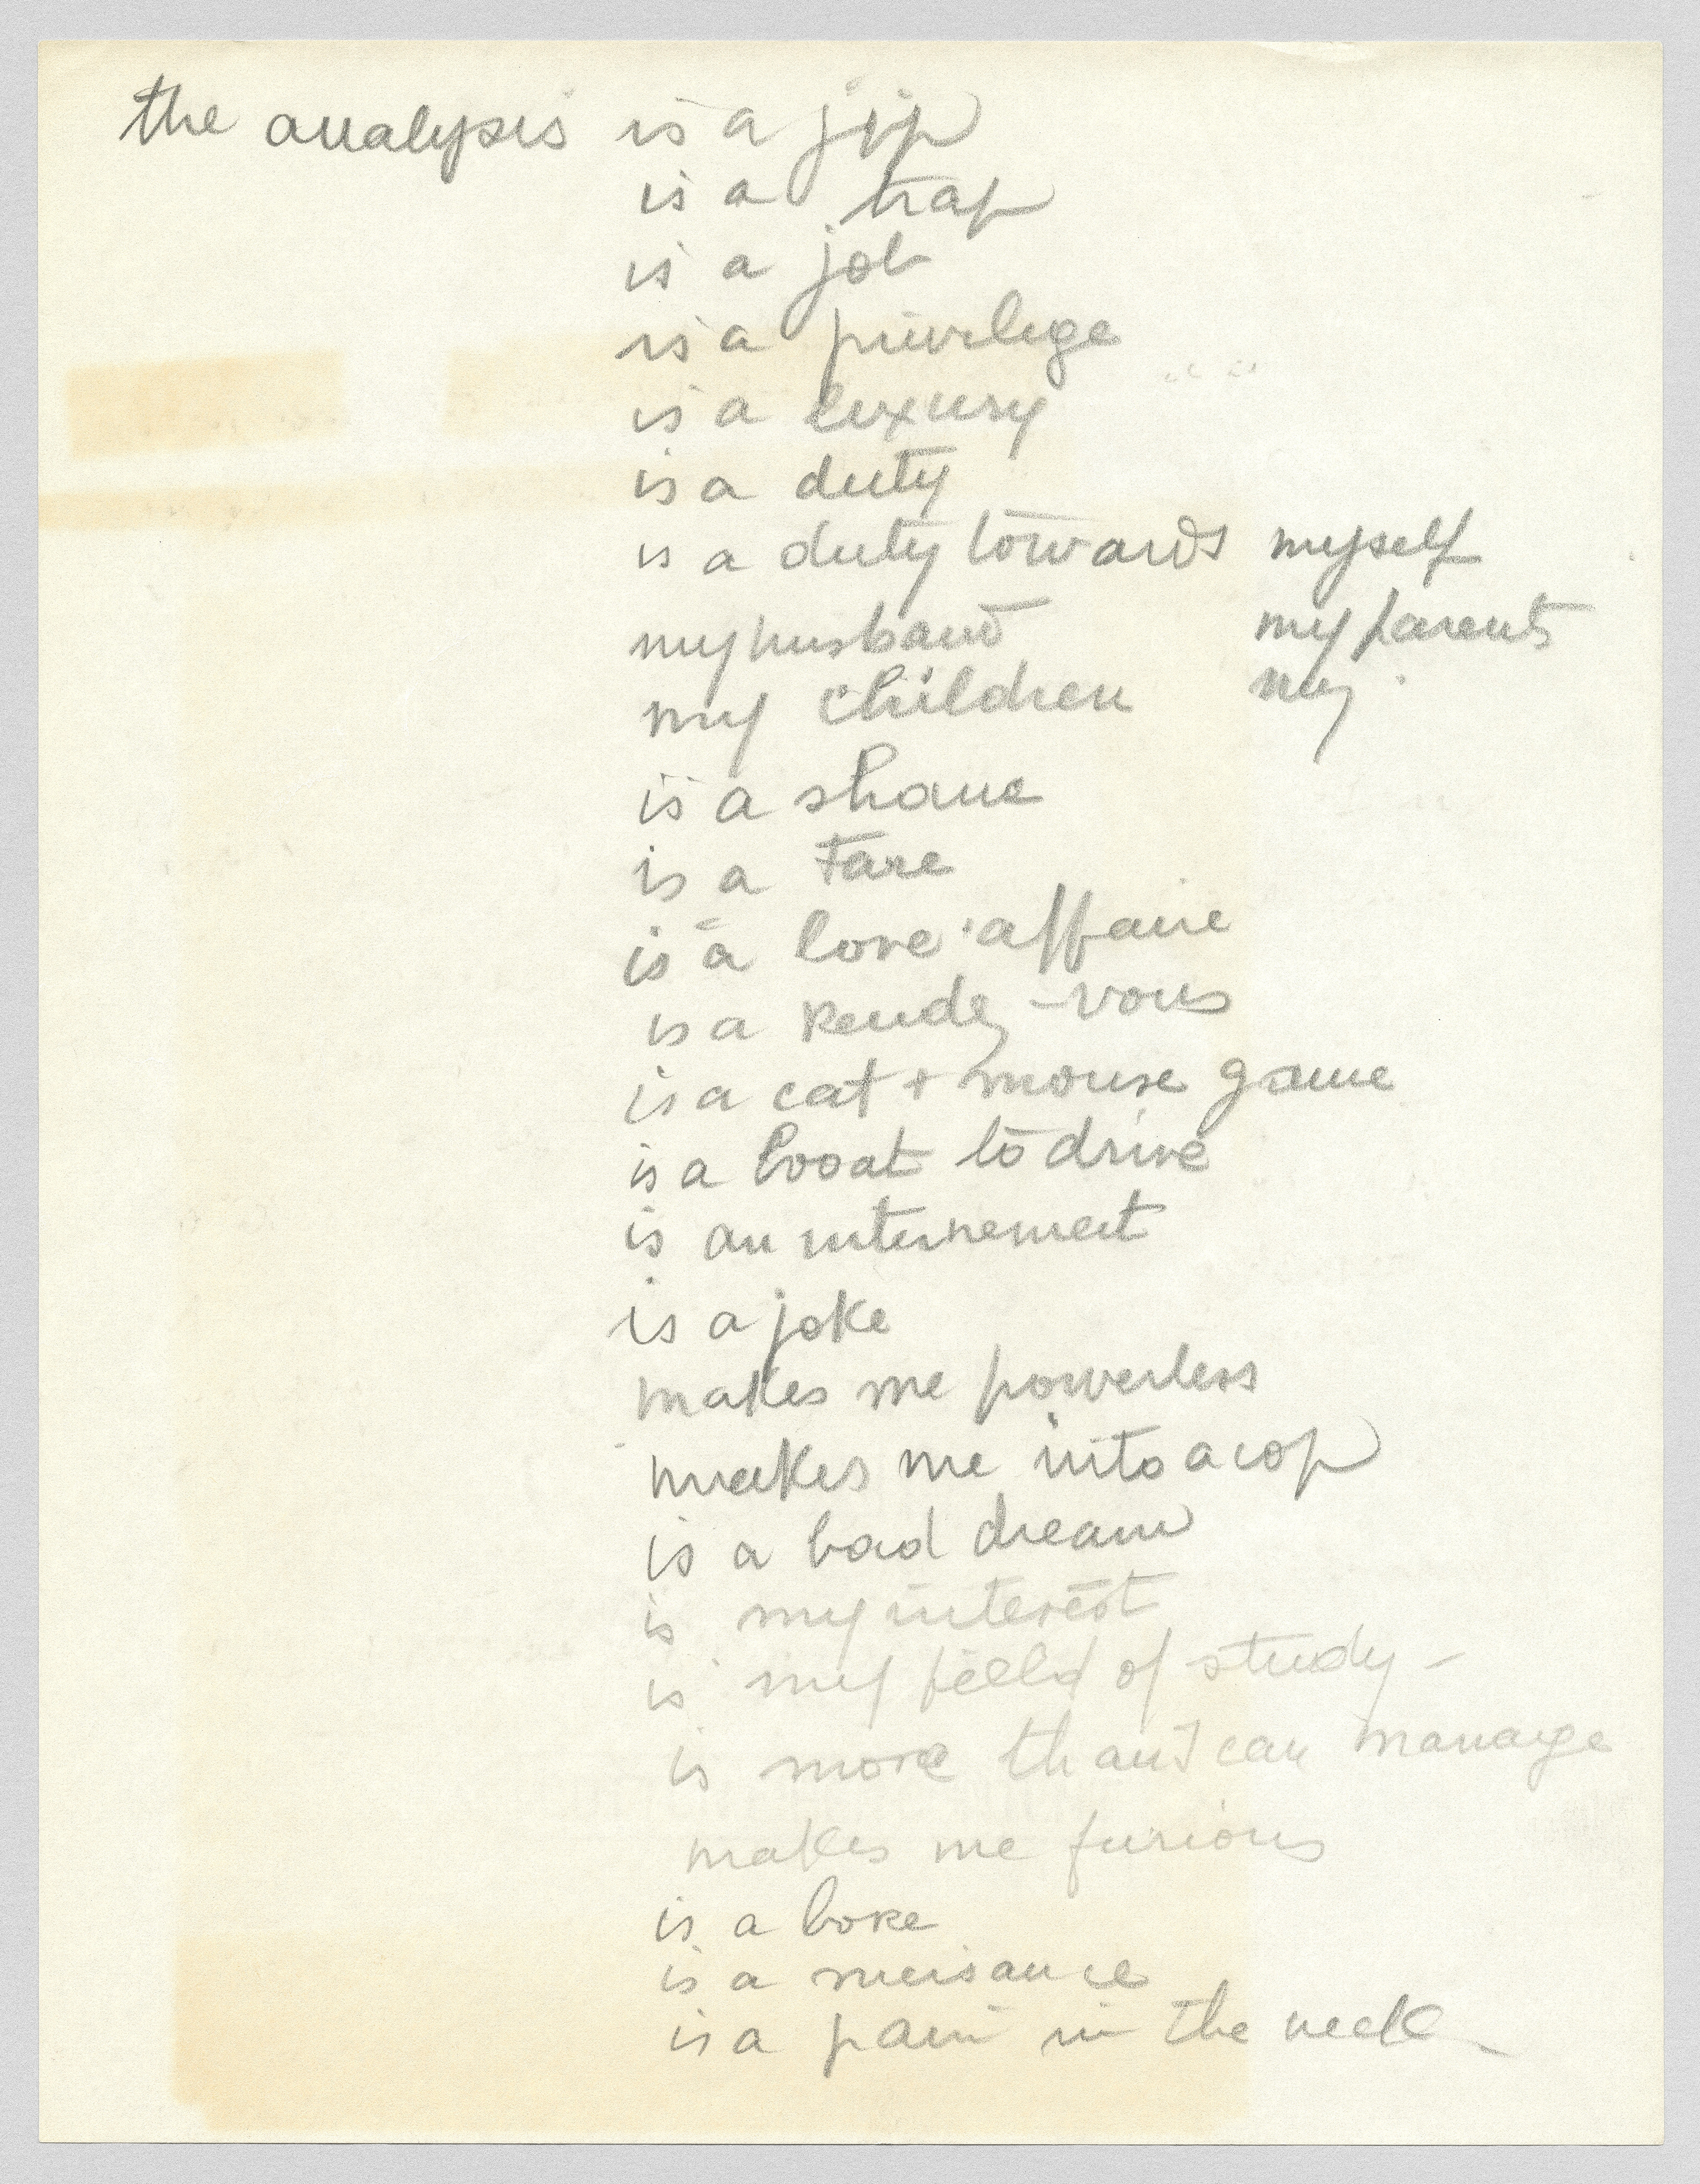 the analysis is a jip
is a trap
is a job
is a privilege
is a luxury
is a duty
is a duty towards myself
my husband my parents
my children my
is a shame
is a farce
is a love affaire
is a Rendez-vous
is a cat + mouse game
is a boat to drive
is an internement
is a joke
makes me powerless
makes me into a cop
is a bad dream
is my interest
is my field of study -
is more than I can manage
makes me furious
is a bore
is a nuisance
is a pain in the neck